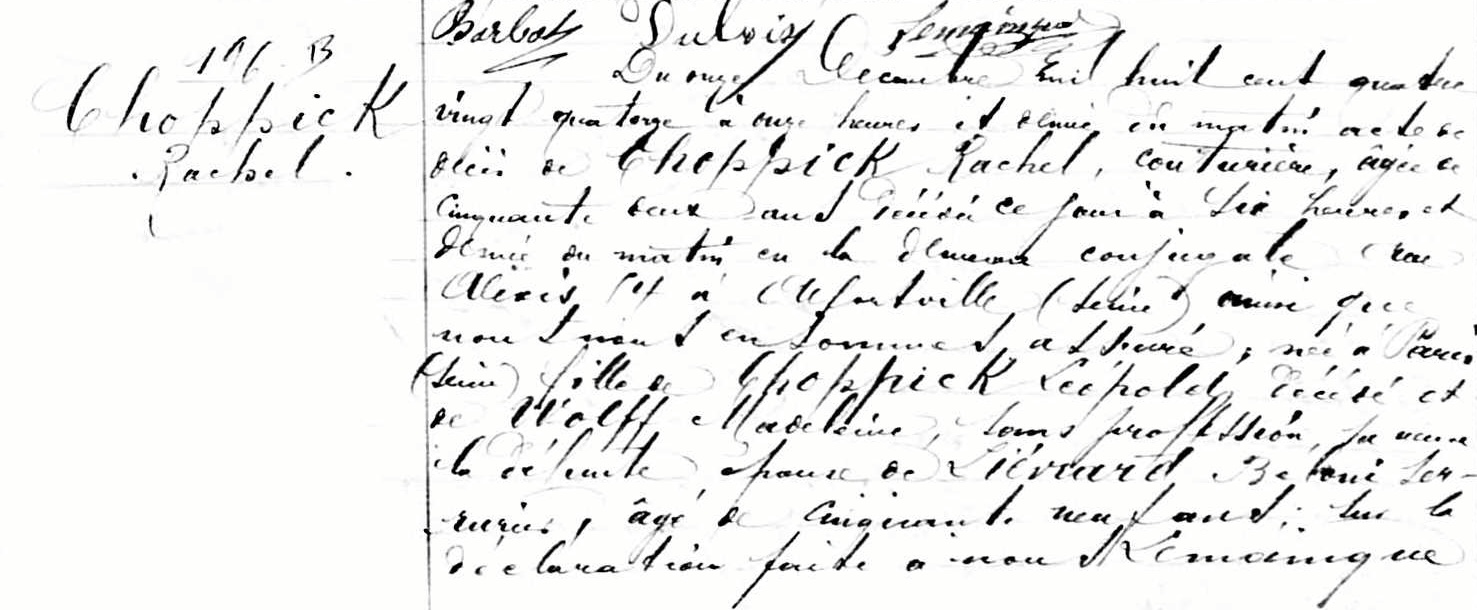 196 B
Choppick
Rachel.
Barbot Dubois Lemoingue
Du onze Décembre mil huit cent quatre
vingt quatorze à onze heures et demie du matin acte de
décès de Choppick Rachel, couturière, âgée de
cinquante deux ans décédée ce jour à six heures et
demie du matin en la demeure conjugale rue
Alexis à Alfortville (Seine) ainsi que
nous nous en sommes assuré, née à Paris
(Seine) fille de Choppick Léopold, décédé et
de Wolff Madeleine, sans profession, sa veuve
la défunte épouse de Liénard ser-
rurier, âgé de cinquante neuf ans; sur la
déclaration faite à nous Lemoingue